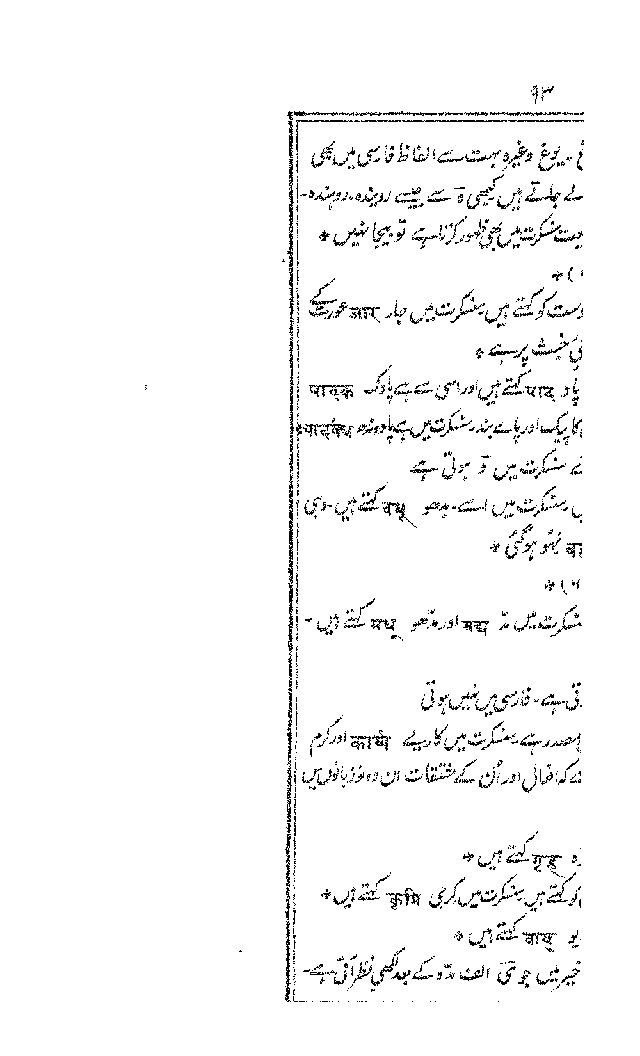 ۹۳
یوغ وغیرہ بہت سے الفاظ فارسی میں بھی
لے جاتے ہیں کبھی ہ سے جیسے روبندہ۔
سنسکرت میں بھی ظہور کرتا ہے تو بیجا نہیں *
*
دوست کو کہتے ہیں سنسکرت میں جار जार عورت کے
خبث پر ہے *
پاد पाद کہتے ہیں اور اسی سے ہے پادک पादक
کا پیک اور پاے بند سنسکرت میں ہے پادبندہ पादबंध *
سنسکرت میں و ہوتی ہے
سنسکرت میں اسے۔ بدھو बधू کہتے ہیں۔ وہی
बा بہو ہو گئی *
*
سنسکرت میں मद्य اور مدھو मधु کہتے ہیں۔
ہے۔ فارسی میں نہیں ہوتی
مصدر ہے سنسکرت میں کاریے कार्य اور کرم
کہ افعال اور اُن کے مشتقات ان دونو زبانوں میں
गृह کہتے ہیں *
کو کہتے ہیں سنسکرت میں کرمی कृमि کہتے ہیں *
یو वायु کہتے ہیں *
میں جو تی الف مدّہ کے بعد لکھی نظر آتی ہے۔